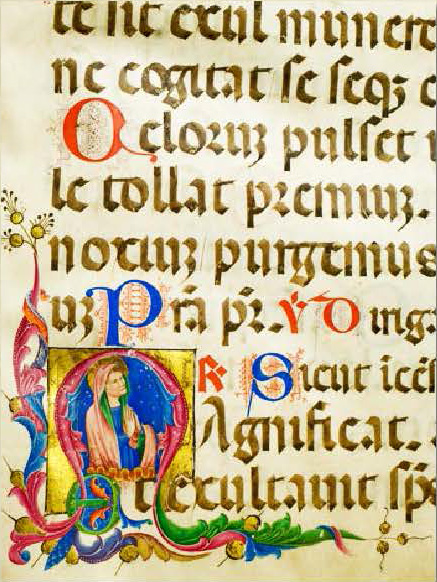 te sit exul munere
ne cogitat se seqz c
Celoruz pulset i
le tollat premiuz.
noxiuz purgemus
uz Prā pr̄. V̓ Dirig
R̓ Sicut icē
Magnificat.
Et exultauit sp̄